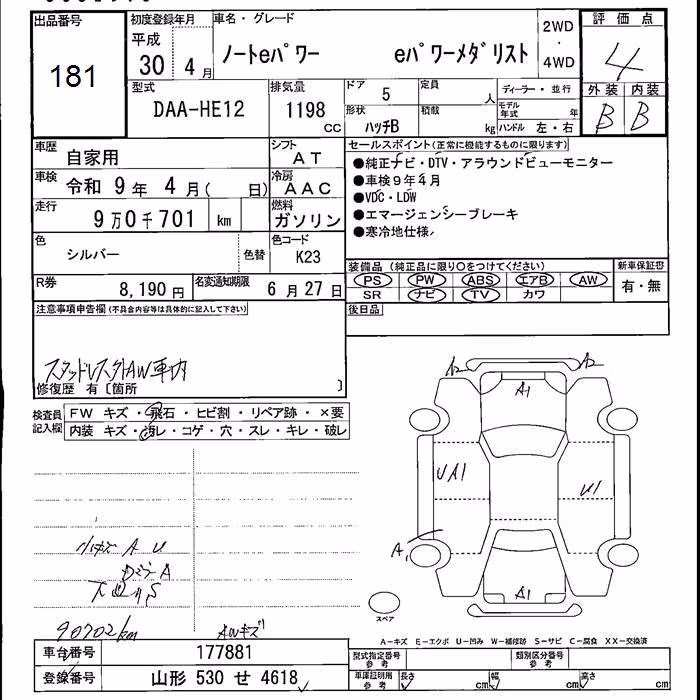 出品番号
181
初度登録年月
平成
30 4月
車名・グレード
ノートeパワー eパワーメダリスト
2WD
・
4WD
評価点
4
外装 内装
B B
型式
DAA-HE12
排気量
1198
CC
ドア
5
定員
人
形状
ハッチB
積載
kg
ディーラー・並行
モデル年式 年
ハンドル 左・右
車歴
自家用
シフト
AT
車検
令和 9年 4月( 日)
冷房
AAC
走行
9万0千701 km
燃料
ガソリン
色
シルバー
色替
色コード
K23
R券
8,190円
名変通知期限
6月27日
セールスポイント(正常に機能するものに限ります)
●純正ナビ・DTV・アラウンドビューモニター
●車検9年4月
●VDC・LDW
●エマージェンシーブレーキ
●寒冷地仕様
装備品 (純正品に限り○をつけてください)
PS PW ABS エアB AW
SR ナビ TV カワ
新車保証書
有・無
後日品
注意事項申告欄(不具合内容等は具体的に記入して下さい)
スタッドレス外AW車内
修復歴 有〔箇所 〕
検査員
記入欄
FW キズ・飛石・ヒビ割・リペア跡・×要
内装 キズ・汚レ・コゲ・穴・スレ・キレ・破レ
小キズ A U
ドア A
下廻り S
90702km
AWキズ
A2 A2
A1
UA1
U1
A1
スペア
A-キズ E-エクボ U-凹み W-補修跡 S-サビ C-腐食 XX-交換済
車台番号
177881
登録番号
山形 530 せ 4618
型式指定番号
参考
類別区分番号
参考
車庫証明用
参考
長さ cm
幅 cm
高さ cm